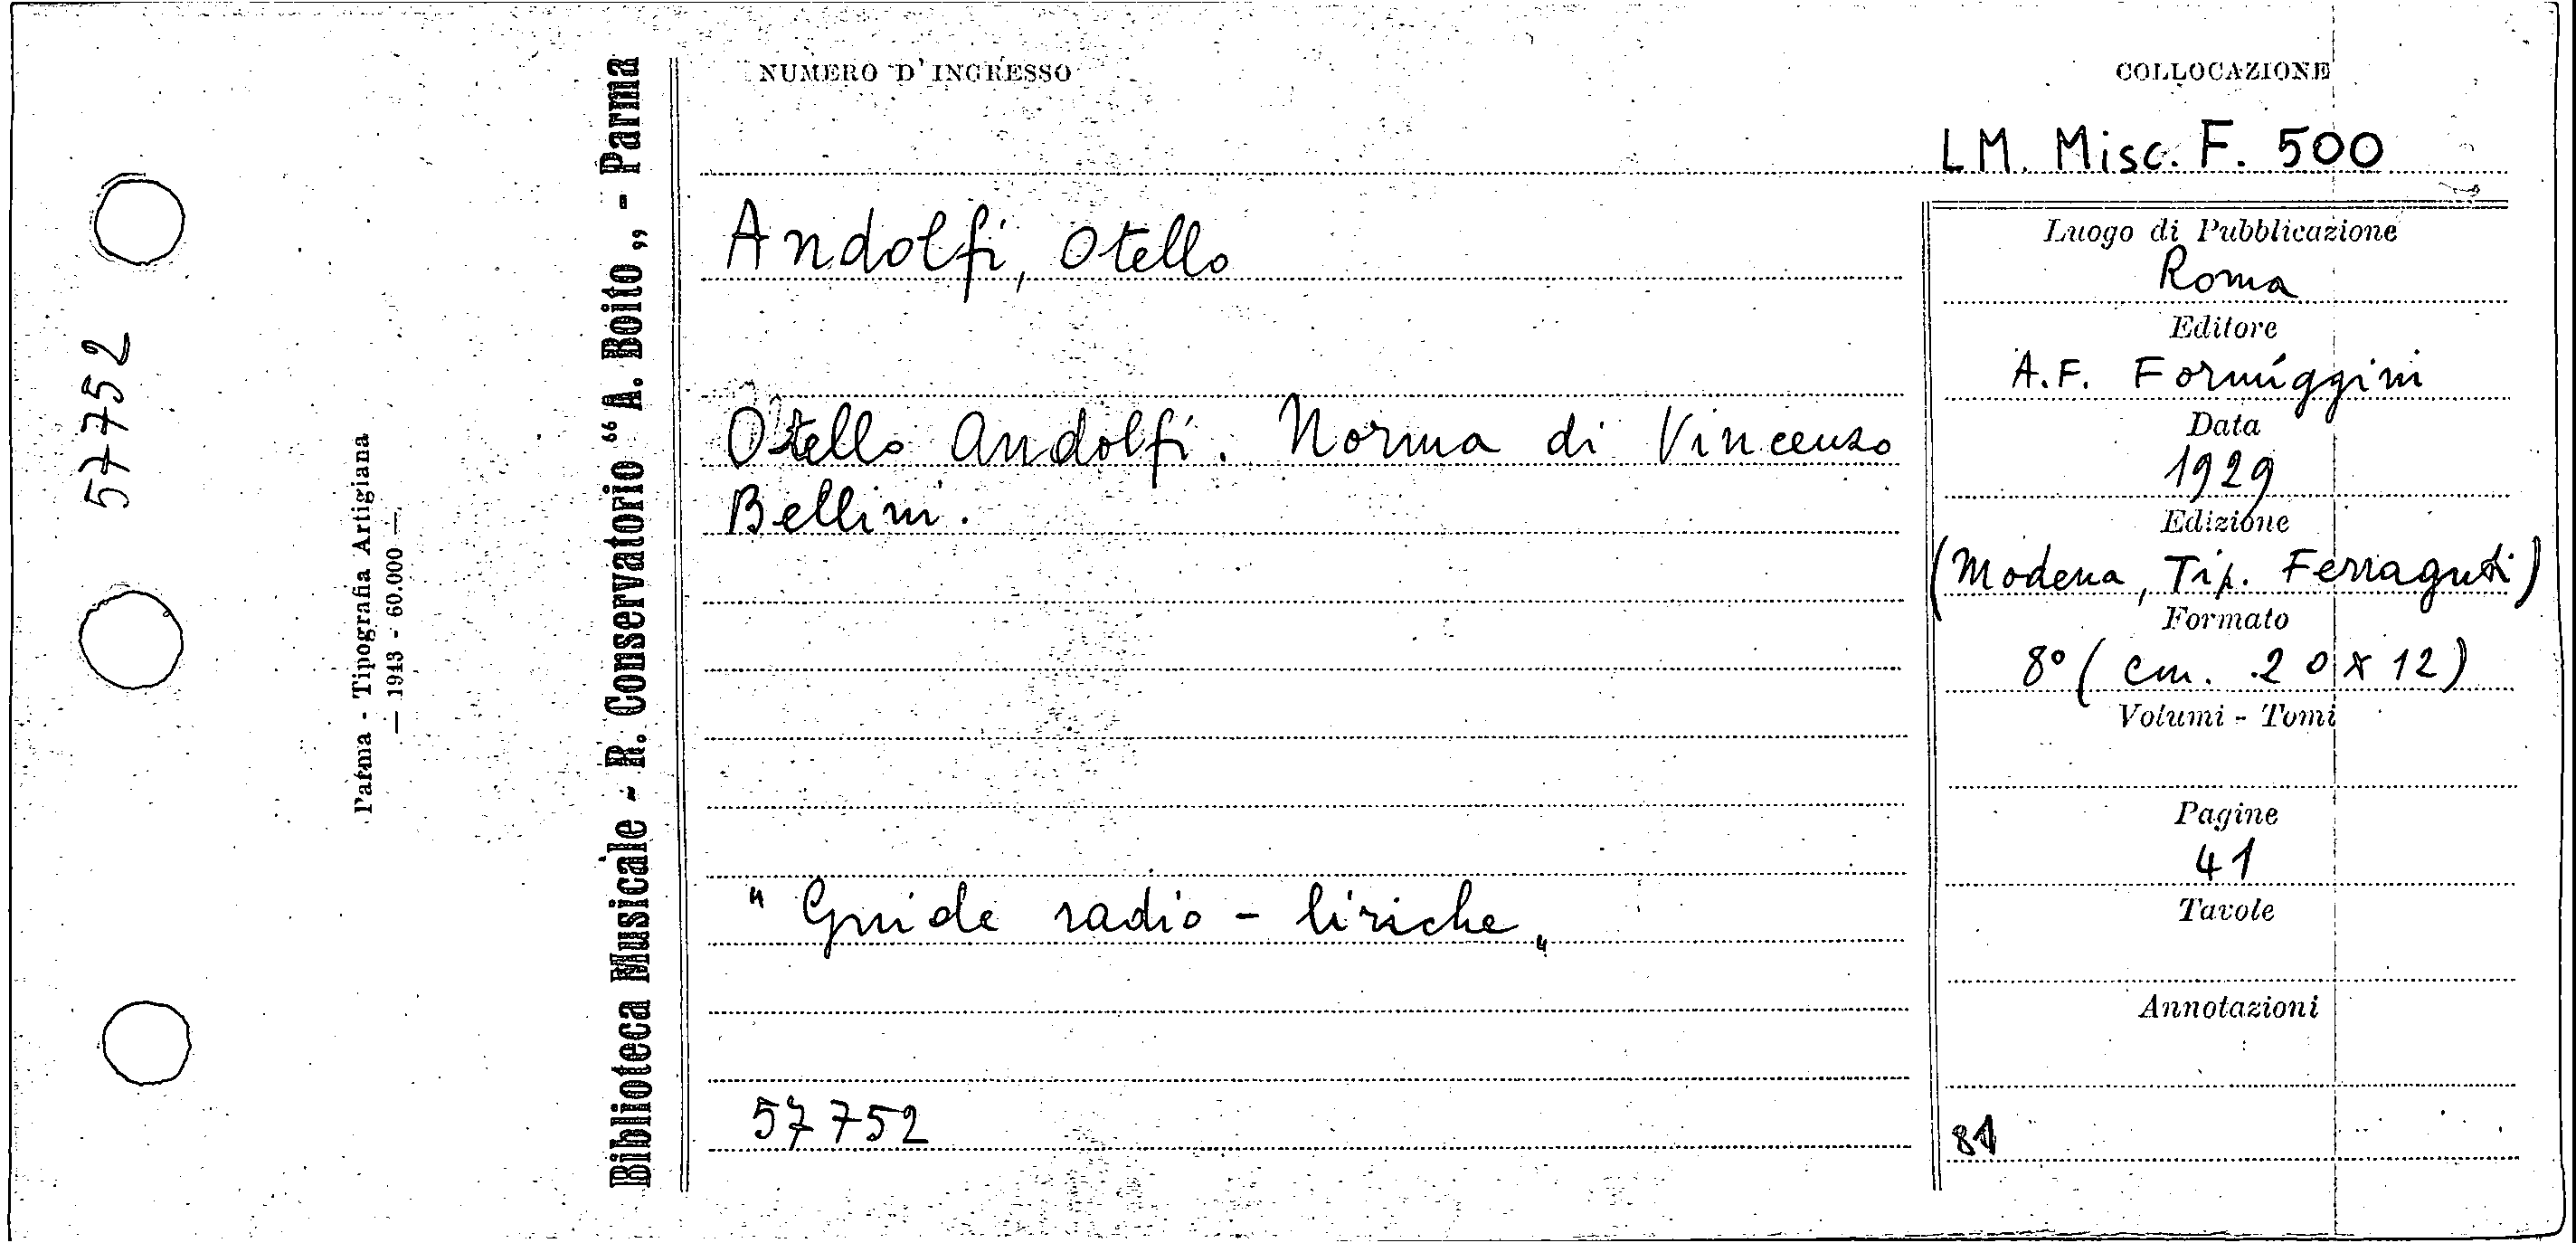 57752
Parma - Tipografia Artigiana
— 1943 - 60.000 —
Biblioteca Musicale - R. Conservatorio “A. Boito„ - Parma
NUMERO D'INGRESSO
COLLOCAZIONE
LM. Misc. F. 500
Andolfi, Otello
Otello Andolfi. Norma di Vincenzo
Bellini.
"Guide radio - liriche„
57752
Luogo di Pubblicazione
Roma
Editore
A.F. Formíggini
Data
1929
Edizione
(Modena, Tip. Ferraguti)
Formato
8° (cm. 20 x 12)
Volumi - Tomi
Pagine
41
Tavole
Annotazioni
81